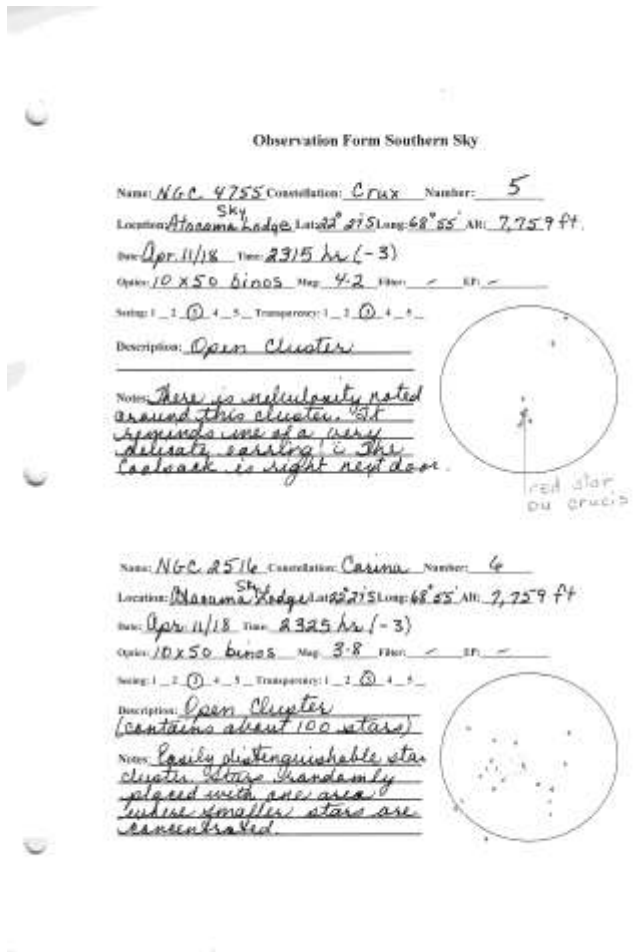 Observation Form Southern Sky
Name: NGC 4755 Constellation: Crux Number: 5
Location: Atacama Sky Lodge Lat: 22° 27'S Long: 68° 55' Alt: 7,759 ft.
Date: Apr. 11/18 Time: 2315 hr (-3)
Optics: 10 x 50 binos Mag: 4.2 Filter: - EP: -
Seeing: 1 _ 2 _ 3 _ 4 _ 5 _ Transparency: 1 _ 2 _ 3 _ 4 _ 5 _
Description: Open Cluster
Notes: There is nebulosity noted
around this cluster. It
reminds me of a very
delicate earring. The
Coalsack is right next door.
red star
DU crucis
Name: NGC 2516 Constellation: Carina Number: 6
Location: Atacama Sky Lodge Lat: 22° 27'S Long: 68° 55' Alt: 7,759 ft
Date: Apr 11/18 Time: 2325 hr (-3)
Optics: 10x50 binos Mag: 3.8 Filter: - EP: -
Seeing: 1 _ 2 _ 3 _ 4 _ 5 _ Transparency: 1 _ 2 _ 3 _ 4 _ 5 _
Description: Open Cluster
(contains about 100 stars)
Notes: Easily distinguishable star
cluster. Stars randomly
placed with one area
where smaller stars are
concentrated.